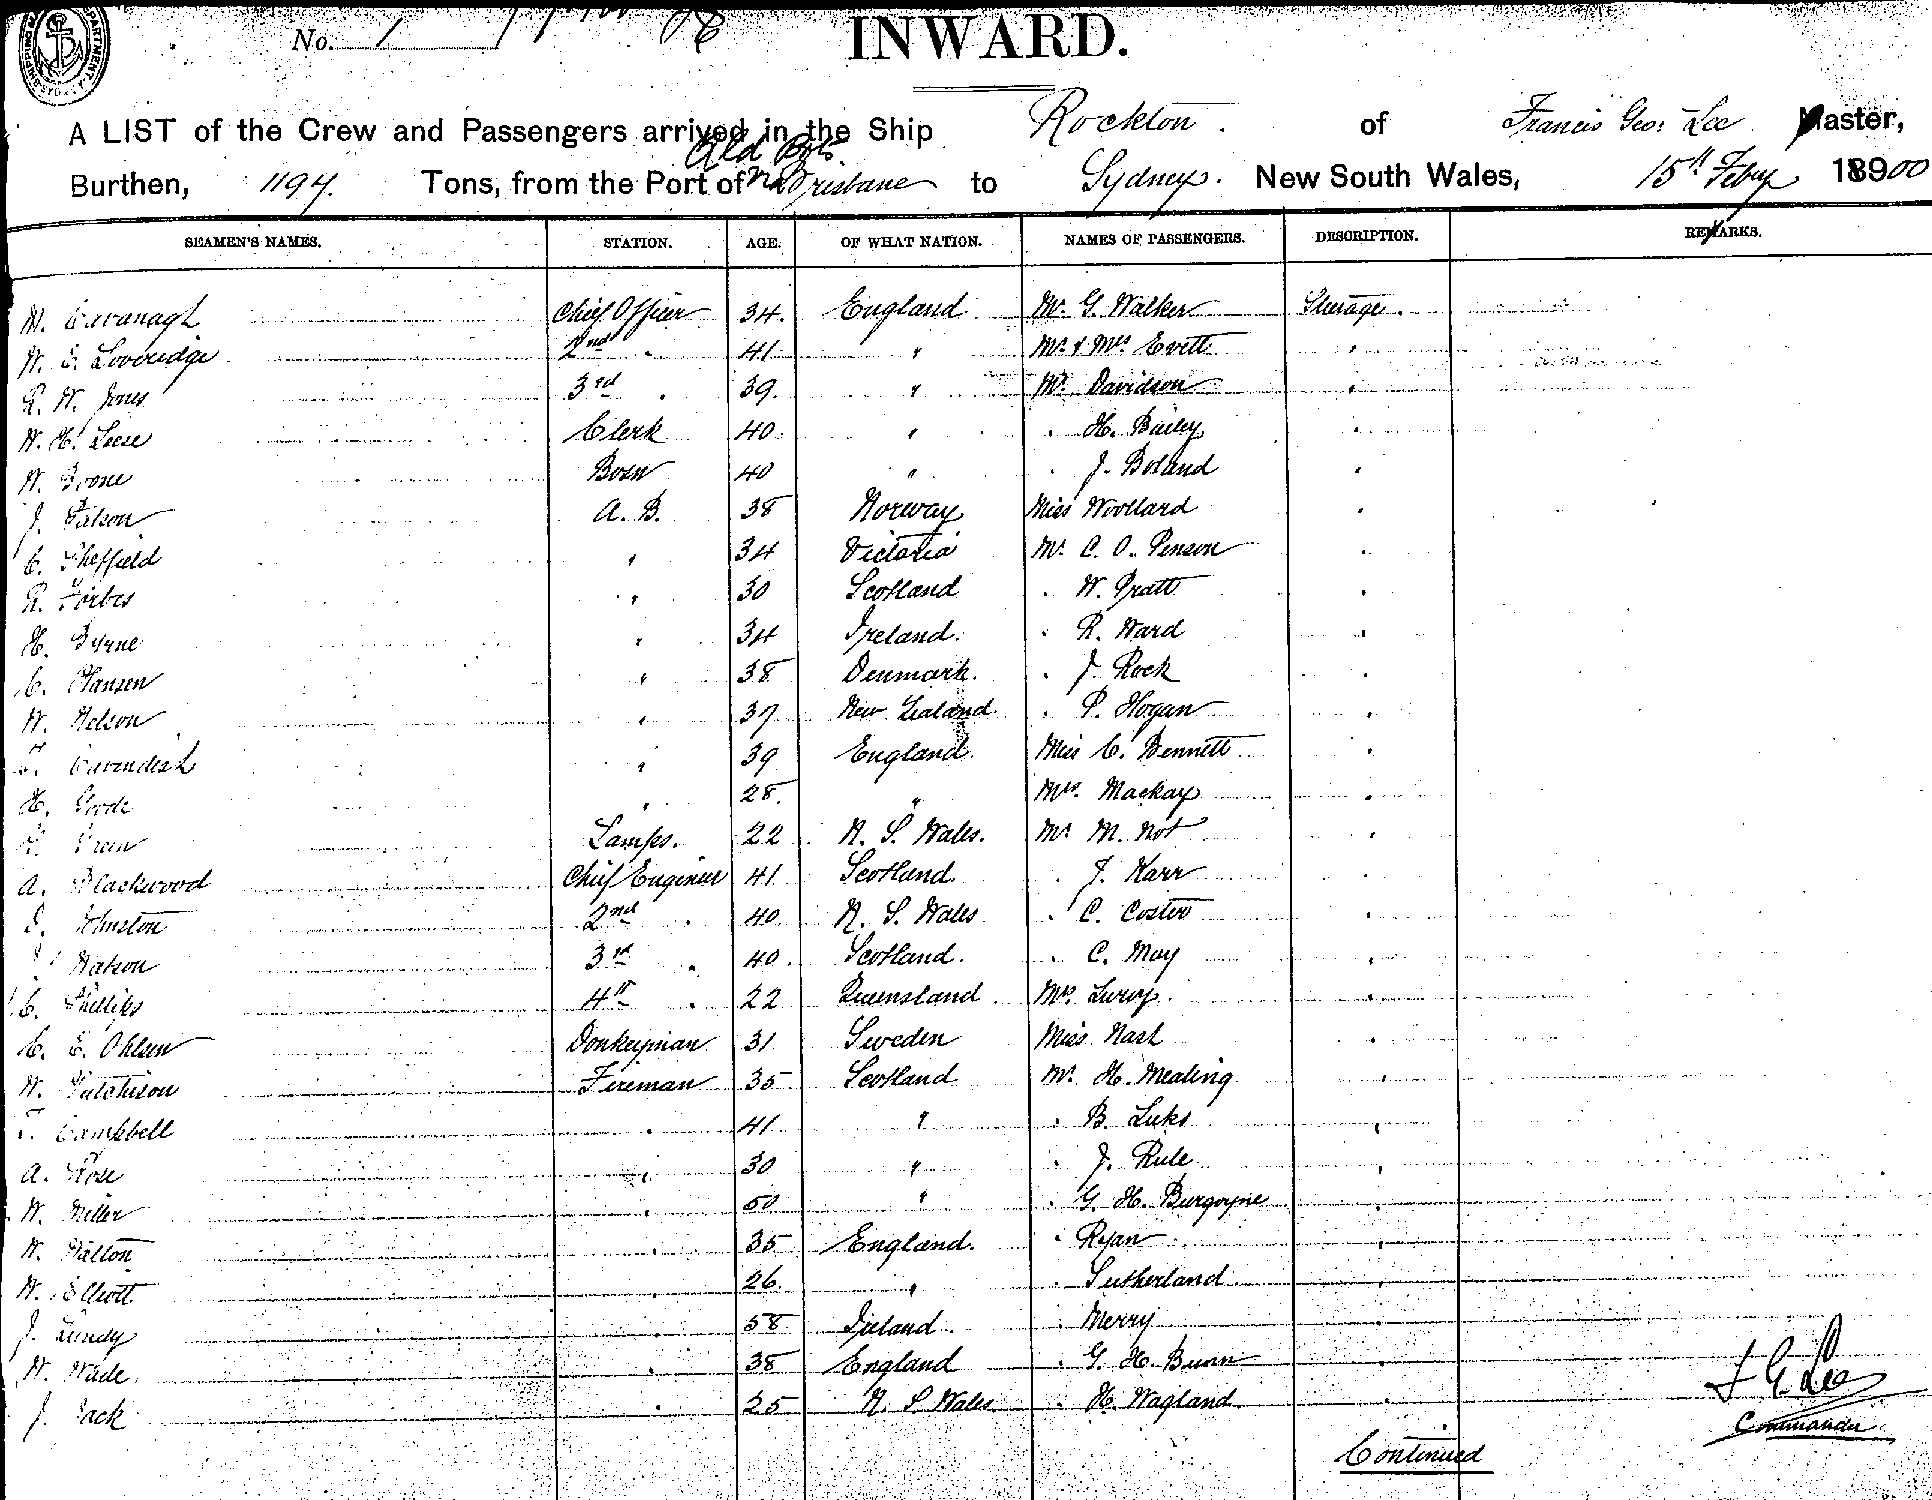 No. 1
INWARD.
A LIST of the Crew and Passengers arrived in the Ship Rockton. of Francis Geo: Lee Master,
Qld Pts
Burthen, 1194. Tons, from the Port of Brisbane to Sydney. New South Wales, 15th Feby 18900
SEAMEN'S NAMES. STATION. AGE. OF WHAT NATION. NAMES OF PASSENGERS. DESCRIPTION. REMARKS.
M. Cavanagh Chief Officer 34. England Mr G. Walker Steerage.
W. E. Loveridge 2nd . 41 " Mr & Mrs Evett "
R. W. Jones 3rd . 39. " Mr Davidson "
W. H. Leese Clerk 40. " . H. Bailey "
W. Boosn 40 " . J. Boland "
J. A. B. 38 Norway Miss Woollard "
C. Sheffield " 34 Victoria Mr C. O. Penson "
R. Forbes " 30 Scotland . W. Pratt "
H. Byrne " 34 Ireland. . R. Ward "
C. Hansen " 38 Denmark. . J. Rock "
W. Nelson " 37 New Zealand . P. Hogan "
T. Cavendish " 39 England. Miss C. Bennett "
H. Goode " 28. " Mrs. Mackay "
Green Lamps. 22 N. S. Wales. Mr M. Not "
A. Blackwood Chief Engineer 41 Scotland. . J. Karr "
Johnston 2nd . 40 N. S. Wales . C. Coster "
Watson 3rd . 40. Scotland. . C. May "
C. Phillips 4th . 22 Queensland "
C. E. Ohlsen Donkeyman 31 Sweden Miss Nash "
W. Hutchison Fireman 35 Scotland Mr H. Mealing "
T. Campbell " 41 " . B. Luks "
A. Rose " 30 " . J. Rule "
W. Miller " 50 " . G. H. Burgoyne "
W. Walton " 35 England. . Ryan "
W. Elliott " 26. " . Sutherland "
J. Lundy " 58 Ireland. . Merry "
W. Wade. " 38 England . G. H. Bunn "
J. Jack " 25 N. S. Wales . H. Wagland "
F G Lee
Commander
Continued